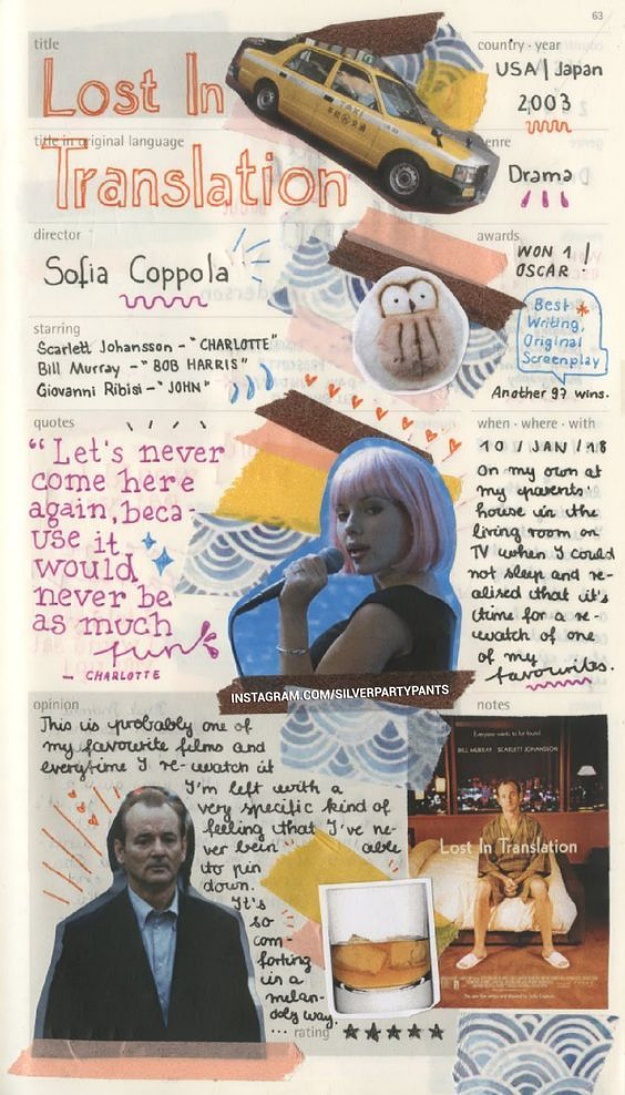 63
title
country · year
Lost In
USA | Japan
2003
title in original language
genre
Translation
Drama
TAXI
director
awards
Sofia Coppola
WON 1
OSCAR :
Best
Writing,
Original
Screenplay
starring
Scarlett Johansson - "CHARLOTTE"
Bill Murray - "BOB HARRIS"
Giovanni Ribisi - "JOHN"
Another 97 wins.
quotes
"Let's never
come here
again, beca-
use it
would
never be
as much
fun"
- CHARLOTTE
when · where · with
10 / JAN / 18
on my own at
my parents'
house in the
living room on
TV when I could
not sleep and re-
alised that it's
time for a re-
watch of one
of my
favourites.
INSTAGRAM.COM/SILVERPARTYPANTS
opinion
This is probably one of
my favourite films and
everytime I re-watch it
I'm left with a
very specific kind of
feeling that I've ne-
ver been able
to pin
down.
It's
so
com-
forting
in a
melan-
choly way.
... rating ★★★★★
notes
Everyone wants to be found.
BILL MURRAY SCARLETT JOHANSSON
Lost In Translation